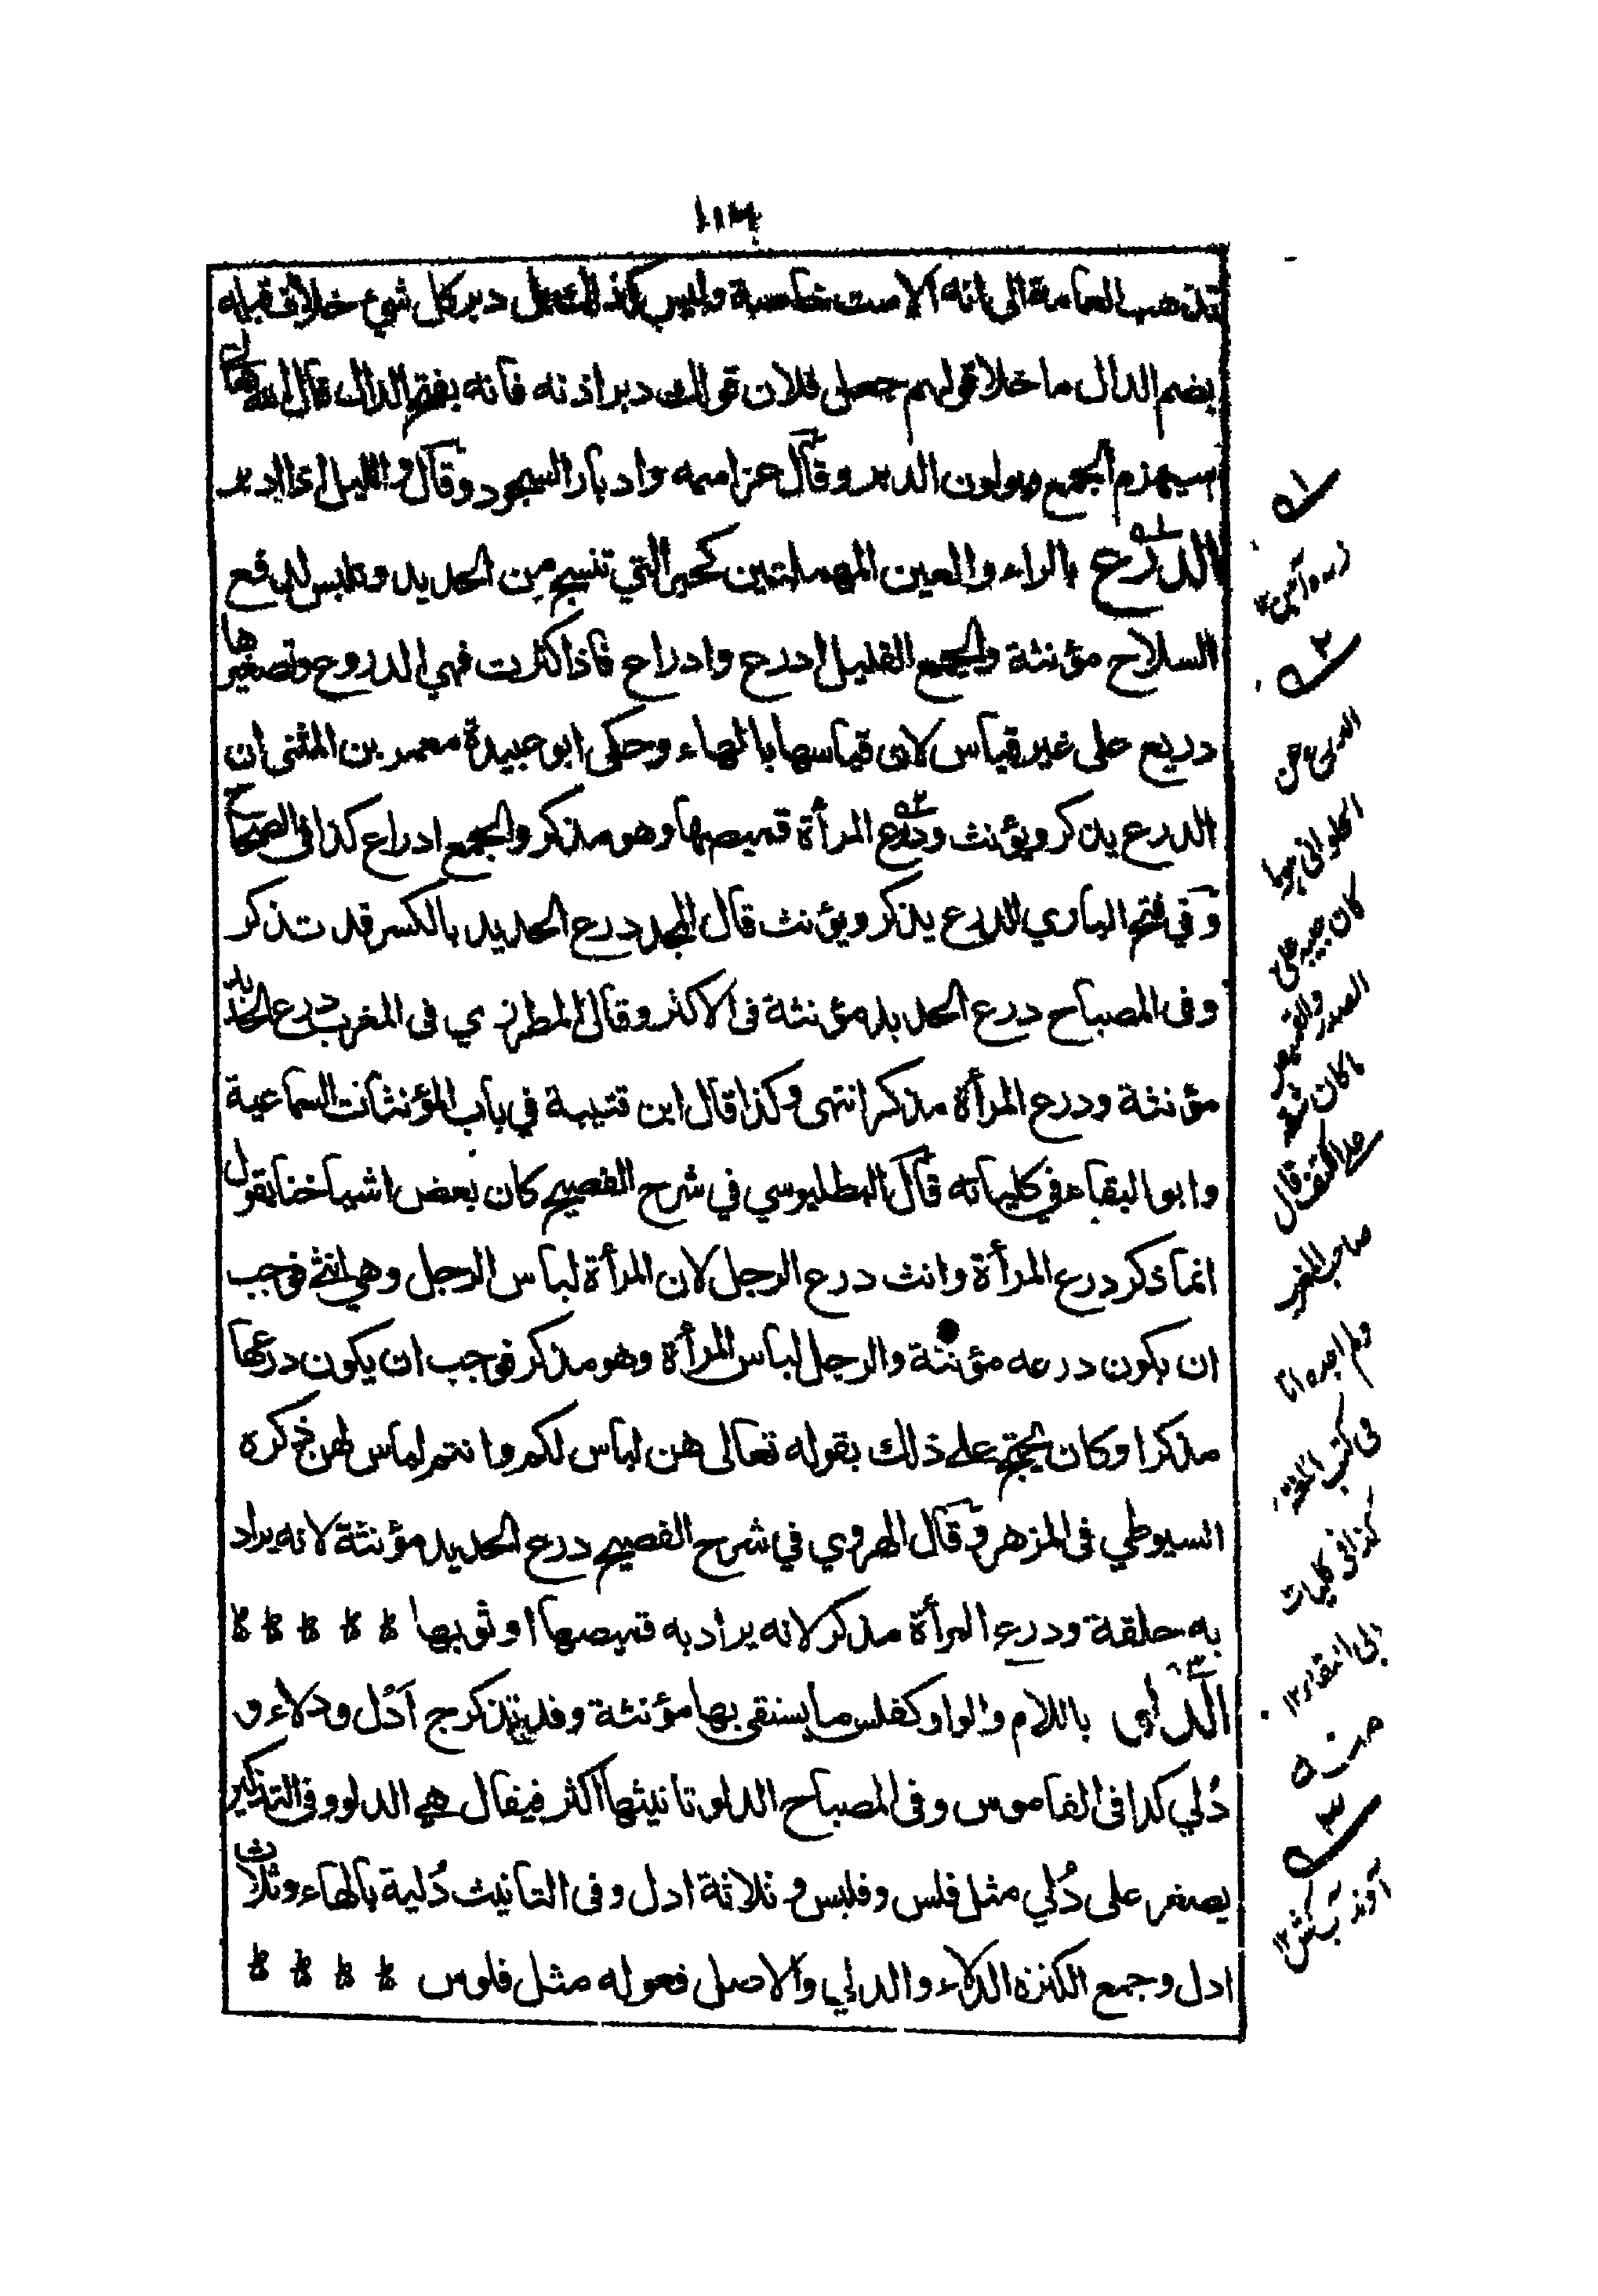 تذهب العامة الى انه الاست خاصة وليس كذلك بل دبر كل شيء خلاف قبله
بضم الدال ما خلا قولهم جعل فلان قولك دبر اذنه فانه بفتح الدال قال الله تعالى
سيهزم الجمع ويولون الدبر وقال عز اسمه وادبار السجود وقال والليل اذا ادبر
الدرع بالراء والعين المهملتين كحبر التي تنسج من الحديد وتلبس لدفع
السلاح مؤنثة والجمع القليل ادرع وادراع فاذا كثرت فهي الدروع وتصغيرها
دريع على غير قياس لان قياسها بالهاء وحكى ابو عبيدة معمر بن المثنى ان
الدرع يذكر ويؤنث ودرع المرأة قميصها وهو مذكر والجمع ادراع كذا في الصحاح
وفي فتح الباري الدرع يذكر ويؤنث قال المجد درع الحديد بالكسر قد تذكر
وفى المصباح درع الحديد مؤنثة فى الاكثر وقال المطرزي فى المغرب درع الحديد
مؤنثة ودرع المرأة مذكر انتهى وكذا قال ابن قتيبة في باب المؤنثات السماعية
وابو البقاء في كلياته قال البطليوسي في شرح الفصيح كان بعض اشياخنا يقول
انما ذكر درع المرأة وانث درع الرجل لان المرأة لباس الرجل وهي انثى فوجب
ان يكون درعه مؤنثة والرجل لباس المرأة وهو مذكر فوجب ان يكون درعها
مذكرا وكان يحتج على ذلك بقوله تعالى هن لباس لكم وانتم لباس لهن ذكره
السيوطي فى المزهر وقال الهروي في شرح الفصيح درع الحديد مؤنثة لانه يراد
به حلقة ودرع المرأة مذكر لانه يراد به قميصها او ثوبها
الدلو باللام والواو كفلس ما يستقى بها مؤنثة وقد تذكر ج ادل ودلاء و
دُلي كذا فى القاموس وفى المصباح الدلو تانيثها اكثر فيقال هي الدلو وفى التذكير
يصغر على دُلي مثل فلس وفليس وثلاثة ادل وفى التانيث دُلية بالهاء وثلاث
ادل وجمع الكثرة الدلاء والدلي والاصل فعوله مثل فلوس
١
زره آهنى ١٢
٢
الدرع عن
الحلوانى هو ما
كان جيبه على
الصدر والقميص
ما كان شقه
على الكتف قال
صاحب المغرب
ولم اجده انا
فى كتب اللغة
كذا فى كليات
ابى البقاء ١٢
٣
آوند آب كش ١٢